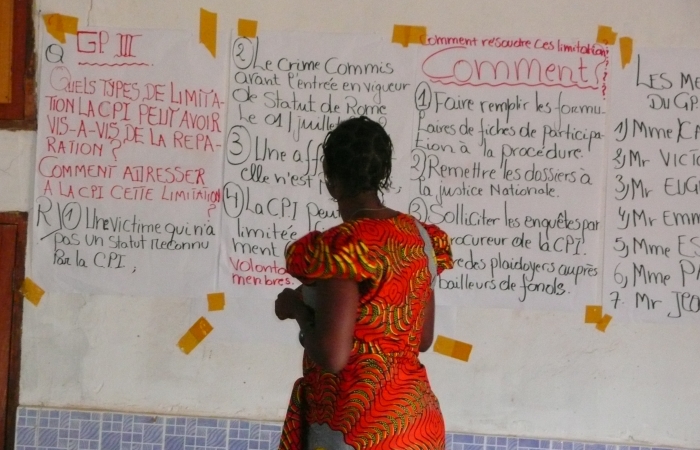 Q GP III
Quels types de limita-
tion la CPI peut avoir
vis-a-vis de la repa-
ration ?
Comment adresser
a la CPI cette limitation
?
R) ① Une victime qui n'a
pas un statut reconnu
par la CPI ;
② Le Crime Commis
avant l'entrée en vigueur
de Statut de Rome
Le 01/juille
③ Une aff
elle n'est
④ La CPI peu
limitée
ment
Volonta
membres.
Comment resoudre ces limitations ?
Comment ?
① Faire remplir les formu-
laires de fiches de participa-
tion à la procédure.
② Remettre les dossiers à
la justice Nationale.
③ Solliciter les enquêtes par
rocureur de la CPI.
des plaidoyers auprès
bailleurs de fonds.
Les Me
du G
1) Mme
2) Mr Vict
3) Mr Eug
4) Mr Emm
5) Mme Es
6) Mme P
7. Mr Je